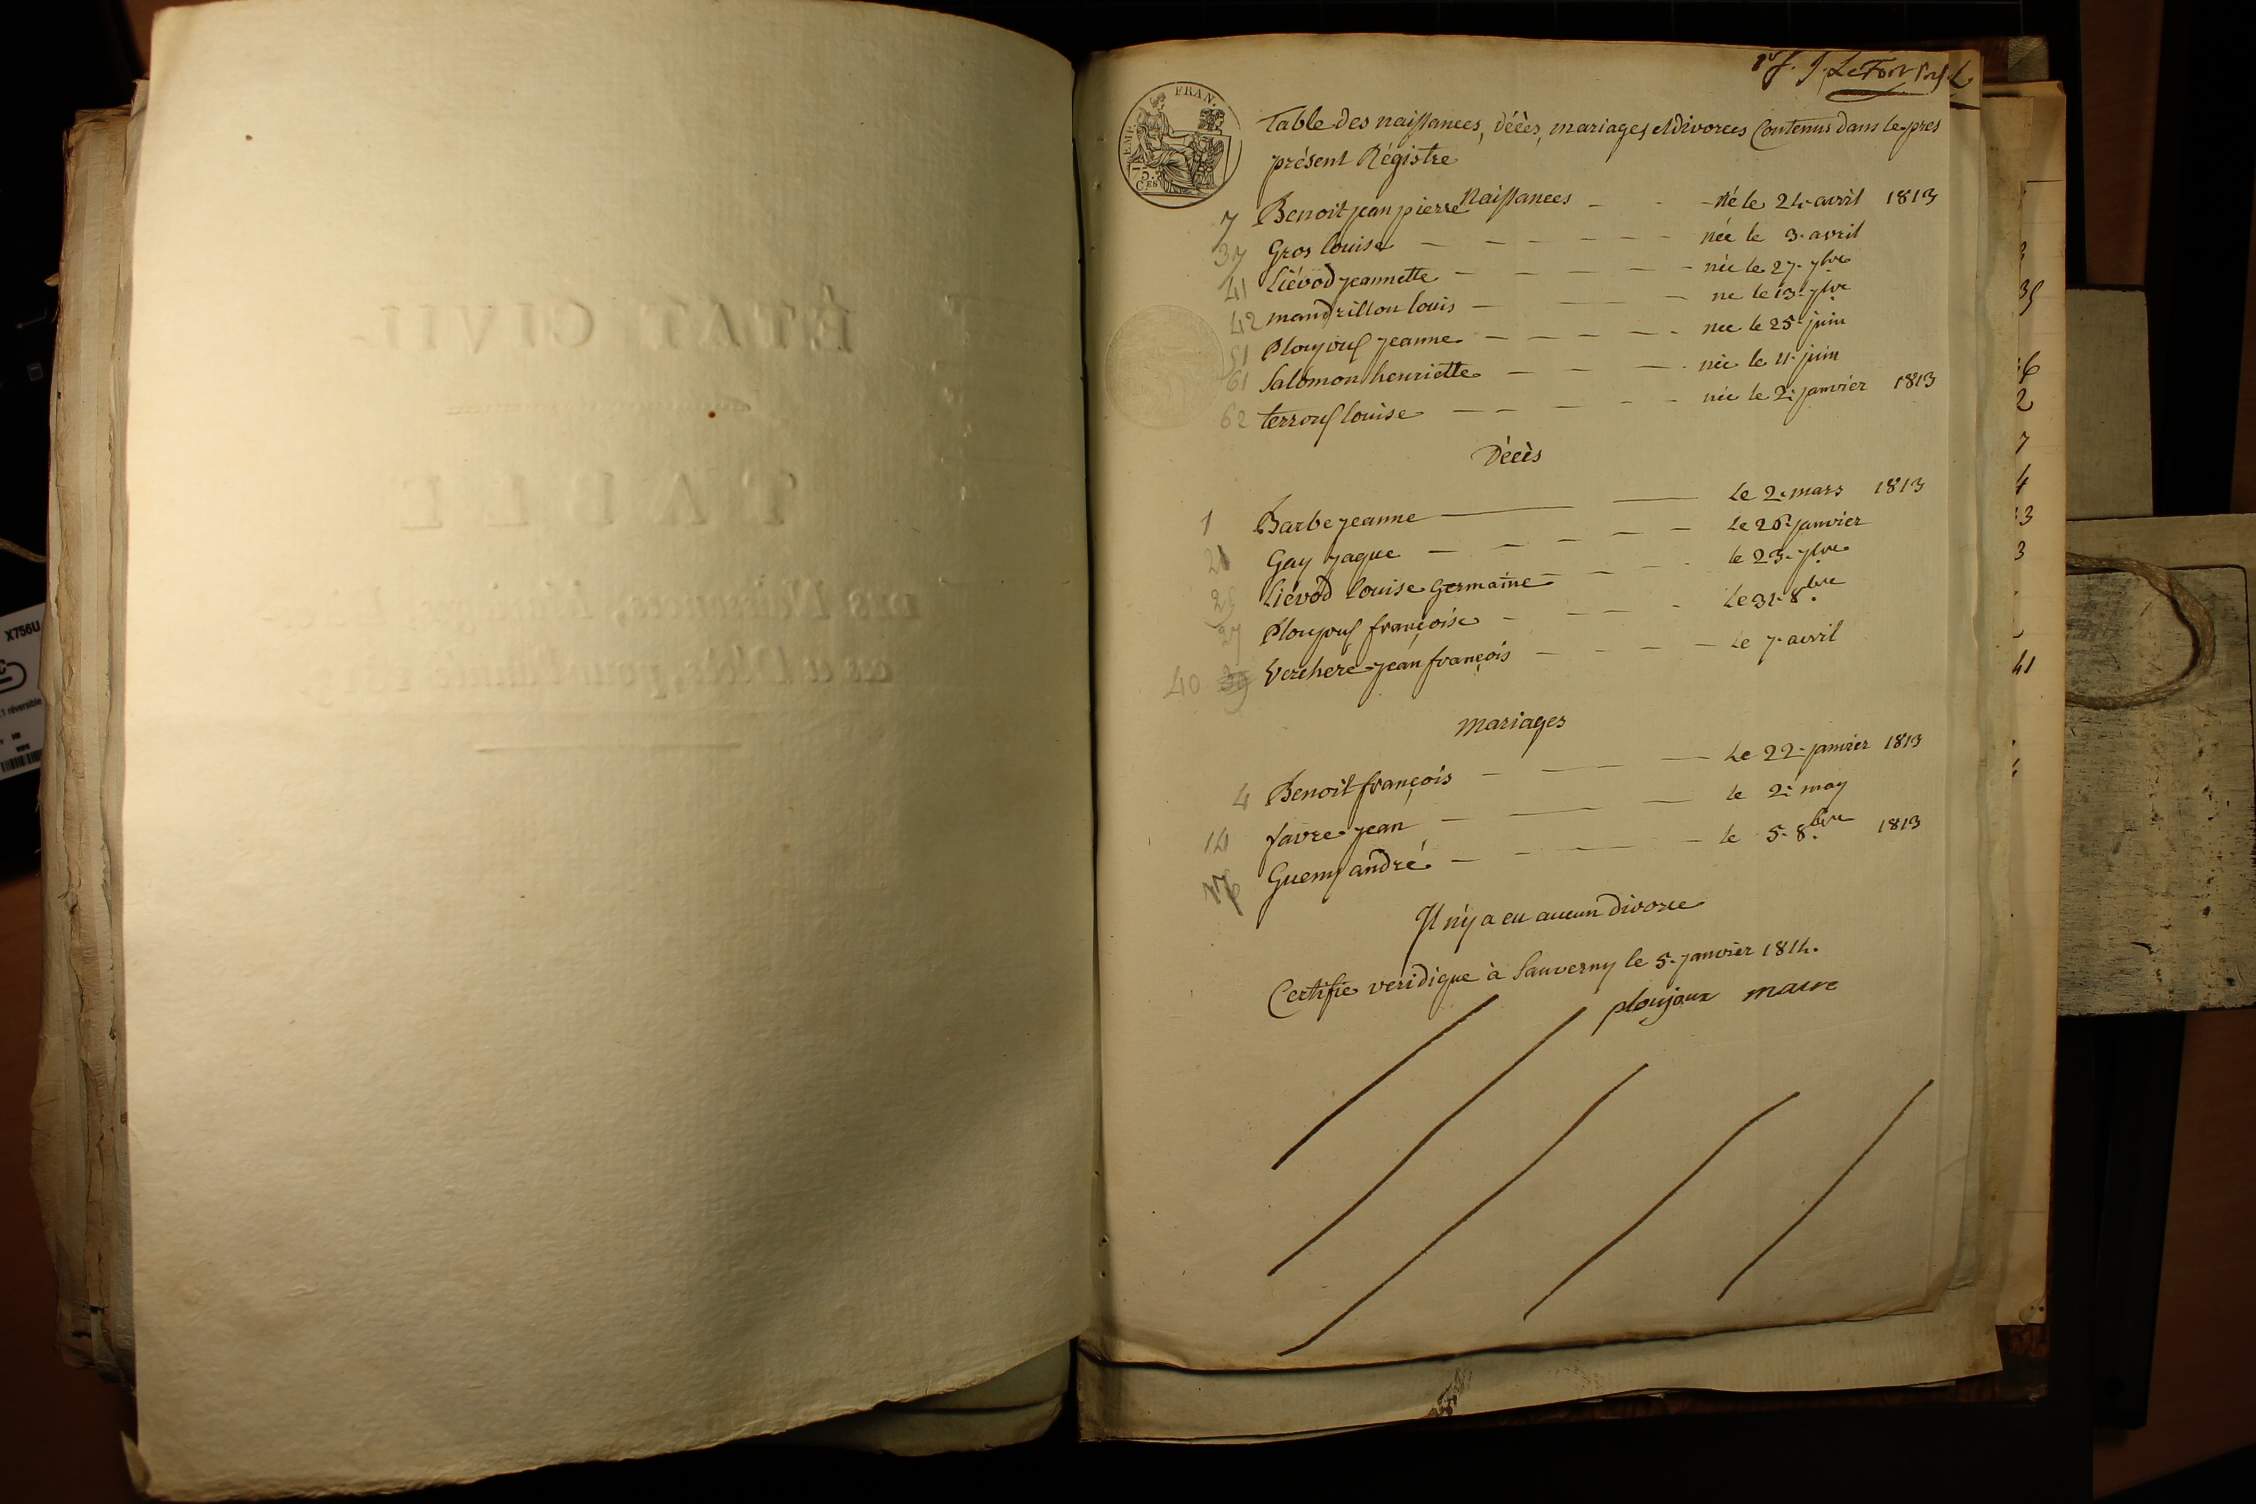 ÉTAT CIVIL
TABLE
DES Naissances, Mariages, Divor-
ces et Décès, pour l'année 1813.
X756U
1 réversible
EMP. FRAN.
75.
CES
1er f. J. LeFort
Table des naissances, décès, mariages et divorces Contenus dans le pres
présent Régistre
Naissances
7 Benoit jean pierre né le 24 avril 1813
37 Gros louise née le 3 avril
41 Liévod jeannette née le 27 7bre
42 mandrillon louis ne le 13 7bre
51 Ploujoux jeanne nee le 25 juin
61 Salomon henriette née le 11 juin
62 terroux louise née le 2 janvier 1813
Décès
1 Barbe jeanne Le 2 mars 1813
21 Gay jaque Le 26 janvier
Liévod louise Germaine le 23 7bre
27 Ploujoux françoise Le 31 8bre
40 39 Verchere jean françois Le 7 avril
Mariages
4 Benoit françois Le 22 janvier 1813
14 favre jean le 2 may
Gueny andré le 5 8bre 1813
Il n'y a eu aucun divorce
Certifie veridique à Sauverny le 5 janvier 1814.
ploujoux maire
2
7
4
3
3
41